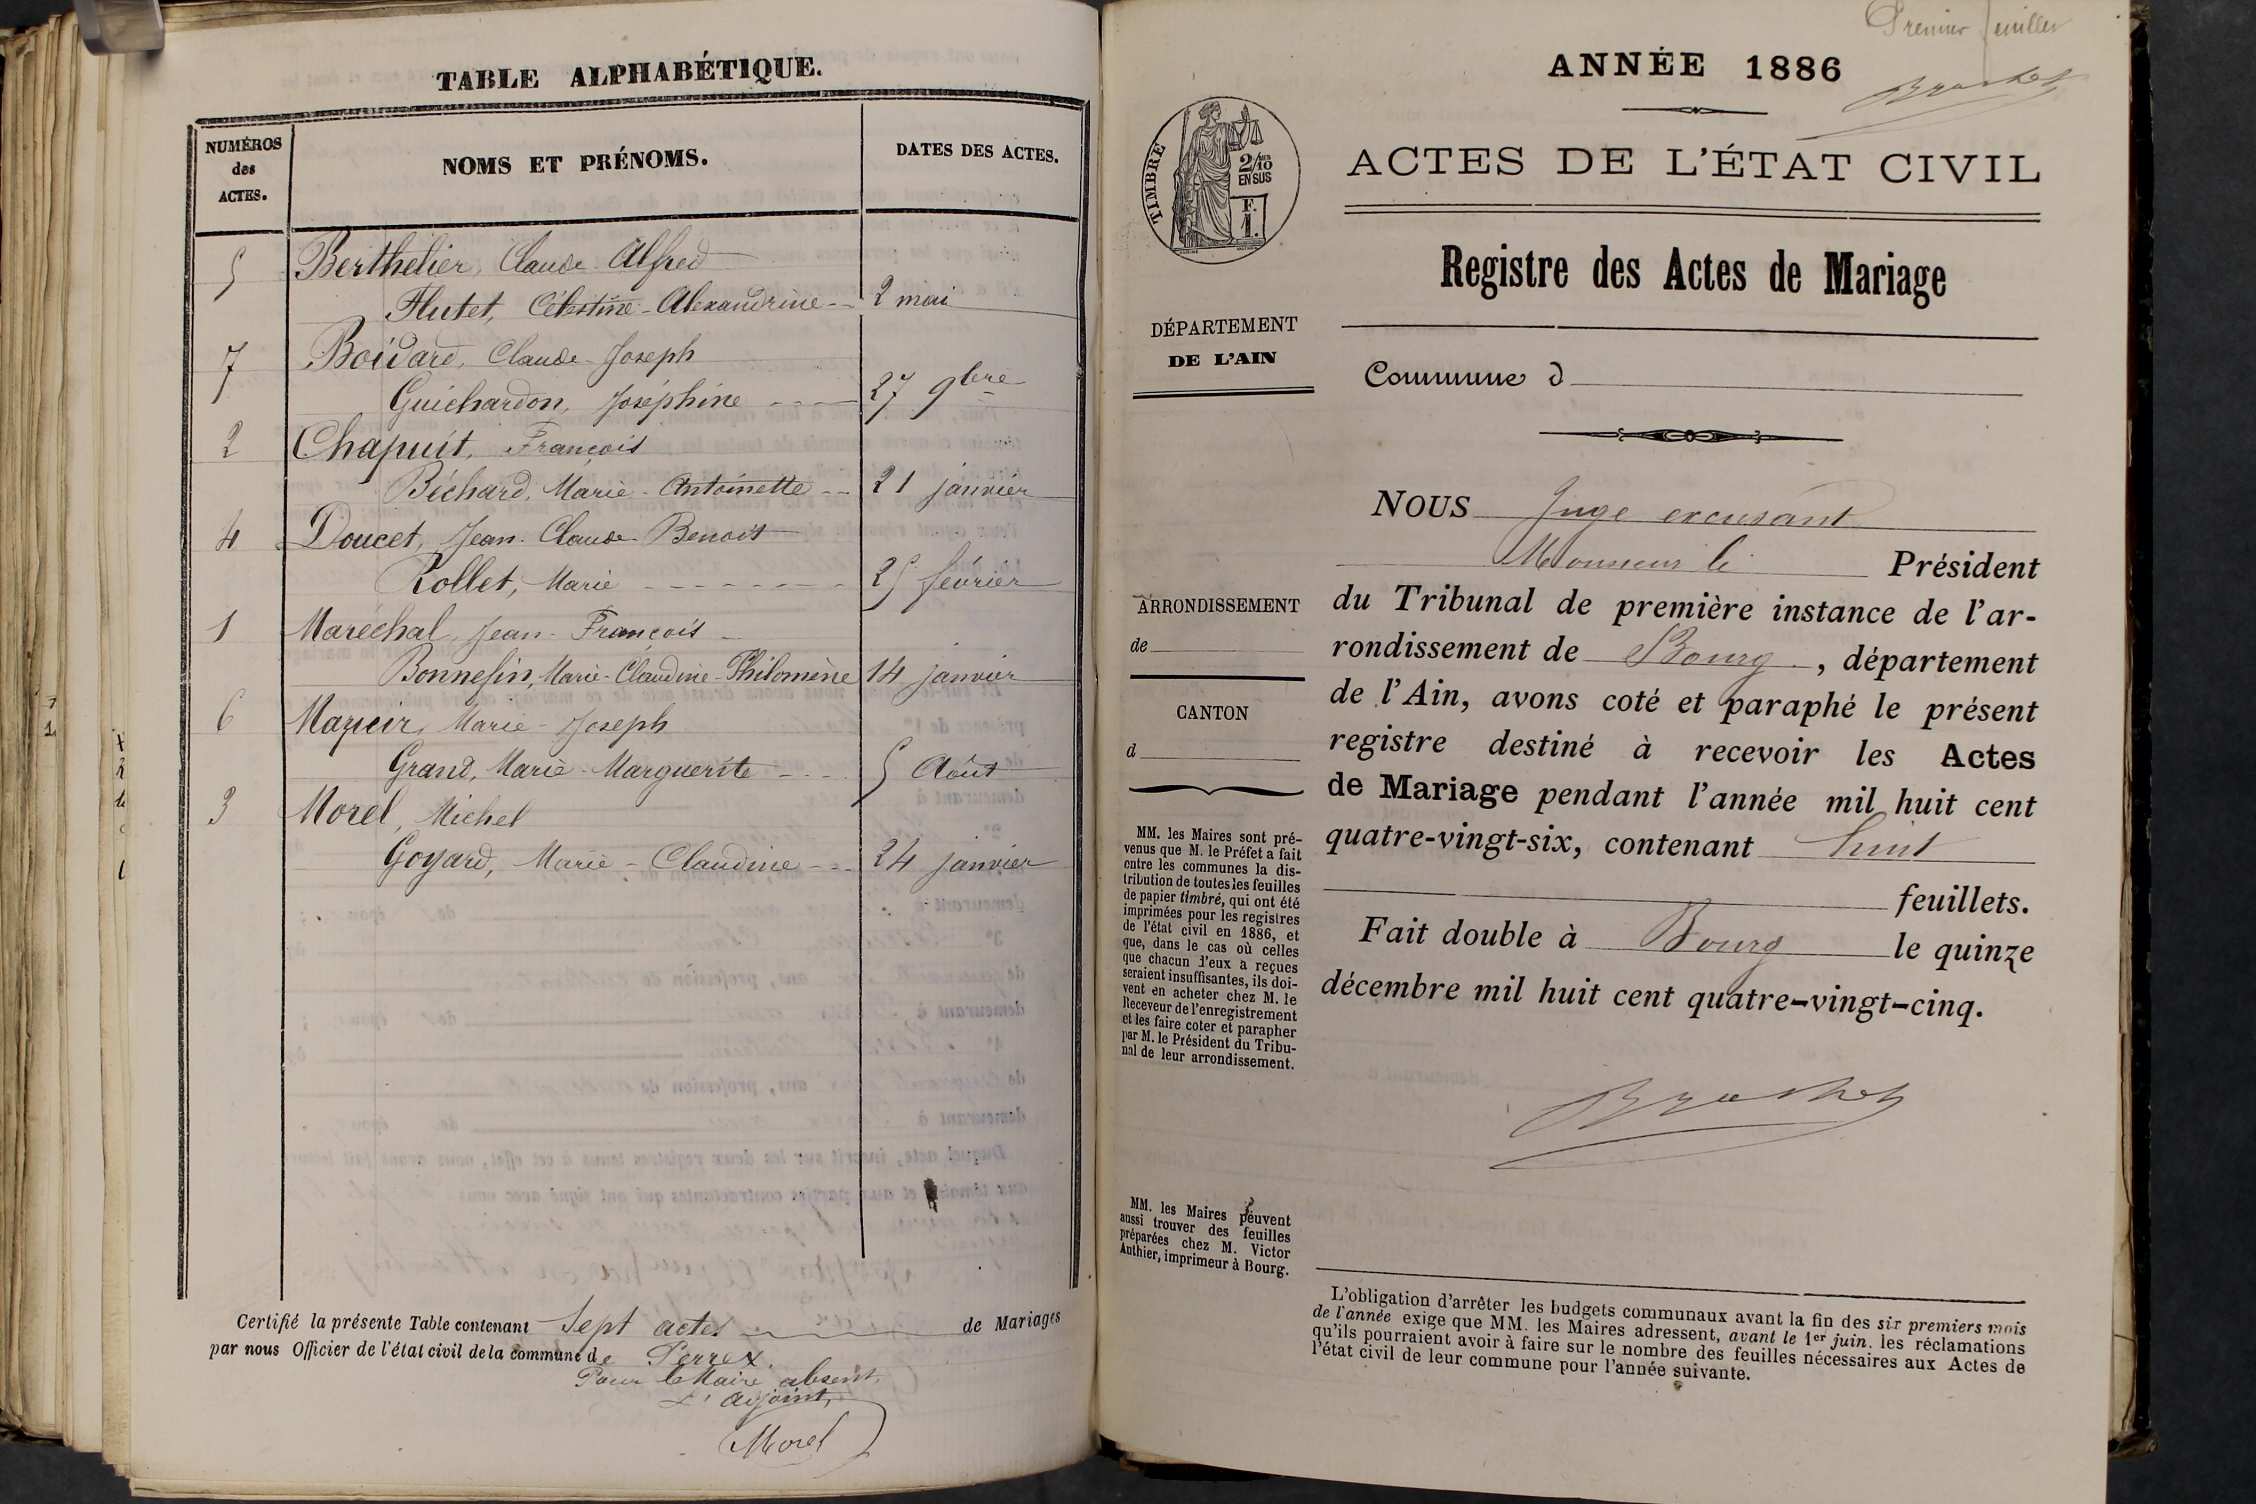 TABLE ALPHABÉTIQUE.
NUMÉROS
des
ACTES.
NOMS ET PRÉNOMS.
DATES DES ACTES.
5 Berthelier, Claude Alfred
Flutet, Célestine-Alexandrine 2 mai
7 Boidard, Claude-Joseph
Guichardon, Joséphine 27 9bre
2 Chapuit, François
Béchard, Marie-Antoinette 21 janvier
4 Doucet, Jean-Claude-Benoit
Rollet, Marie 25 février
1 Maréchal, Jean-François
Bonnefin, Marie-Claudine-Philomène 14 janvier
6 Mazuir, Marie-Joseph
Grand, Marie-Marguerite 5 Août
3 Morel, Michel
Goyard, Marie-Claudine 24 janvier
Certifié la présente Table contenant Sept actes de Mariages
par nous Officier de l'état civil de la commune de Perrex.
Pour le Maire absent,
L'adjoint,
Morel
Premier feuillet
ANNÉE 1886
TIMBRE
2/10
EN SUS
F.
1.
ACTES DE L'ÉTAT CIVIL
Registre des Actes de Mariage
DÉPARTEMENT
DE L'AIN
Commune d
ARRONDISSEMENT
de
CANTON
d
NOUS Juge excusant
Monsieur le Président
du Tribunal de première instance de l'ar-
rondissement de Bourg, département
de l'Ain, avons coté et paraphé le présent
registre destiné à recevoir les Actes
de Mariage pendant l'année mil huit cent
quatre-vingt-six, contenant huit
feuillets.
Fait double à Bourg le quinze
décembre mil huit cent quatre-vingt-cinq.
MM. les Maires sont pré-
venus que M. le Préfet a fait
entre les communes la dis-
tribution de toutes les feuilles
de papier timbré, qui ont été
imprimées pour les registres
de l'état civil en 1886, et
que, dans le cas où celles
que chacun d'eux a reçues
seraient insuffisantes, ils doi-
vent en acheter chez M. le
Receveur de l'enregistrement
et les faire coter et parapher
par M. le Président du Tribu-
nal de leur arrondissement.
MM. les Maires peuvent
aussi trouver des feuilles
préparées chez M. Victor
Authier, imprimeur à Bourg.
L'obligation d'arrêter les budgets communaux avant la fin des six premiers mois
de l'année exige que MM. les Maires adressent, avant le 1er juin, les réclamations
qu'ils pourraient avoir à faire sur le nombre des feuilles nécessaires aux Actes de
l'état civil de leur commune pour l'année suivante.